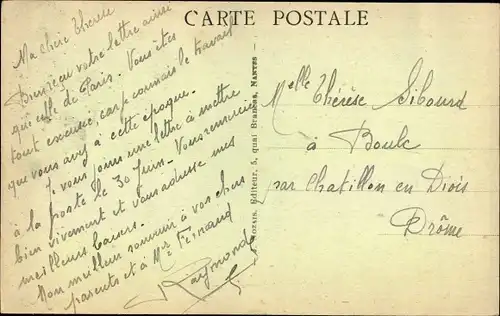 CARTE POSTALE
Ma chère Thérèse
Bien reçu votre lettre ainsi
que celle de Paris. Vous êtes
tout excusée car je connais le travail
que vous avez à cette époque.
Je vous joins une lettre à mettre
à la poste le 30 Juin. Vous remercie
bien vivement et vous adresse mes
meilleurs baisers.
Mon meilleur souvenir à vos chers
parents et à Mr Fernand
Raymond
Éditeur, 5, quai Brancas, NANTES
Melle Thérèse Sibourd
à Boule
par Chatillon en Diois
Drôme